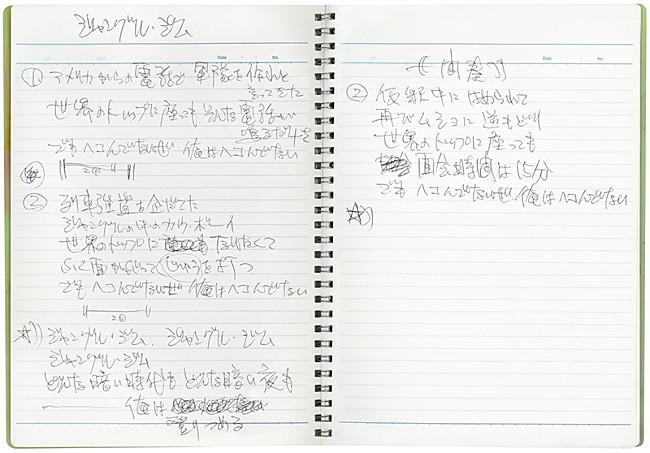 ジャングル・ジム
① アメリカからの電話で 軍隊を作れと
言ってきた
世界のトップに座っても そんな電話が
鳴るだけさ
でも ヘコんでないぜ 俺はヘコんでいない
2回
② 列車強盗を企だてた
ジャングルの中のカウ・ボーイ
世界のトップに なれなくて
を打つ
でも ヘコんでないぜ 俺はヘコんでいない
2回
☆)) ジャングル・ジム、 ジャングル・ジム
ジャングル・ジム
どんな暗い時代も どんな暗い夜も
俺は
登りつめる
② 仮釈中に はめられて
再びムショに 逆もどり
世界のトップに 座っても
面会時間は15分
でも ヘコんでないぜ 俺はヘコんでいない
☆))